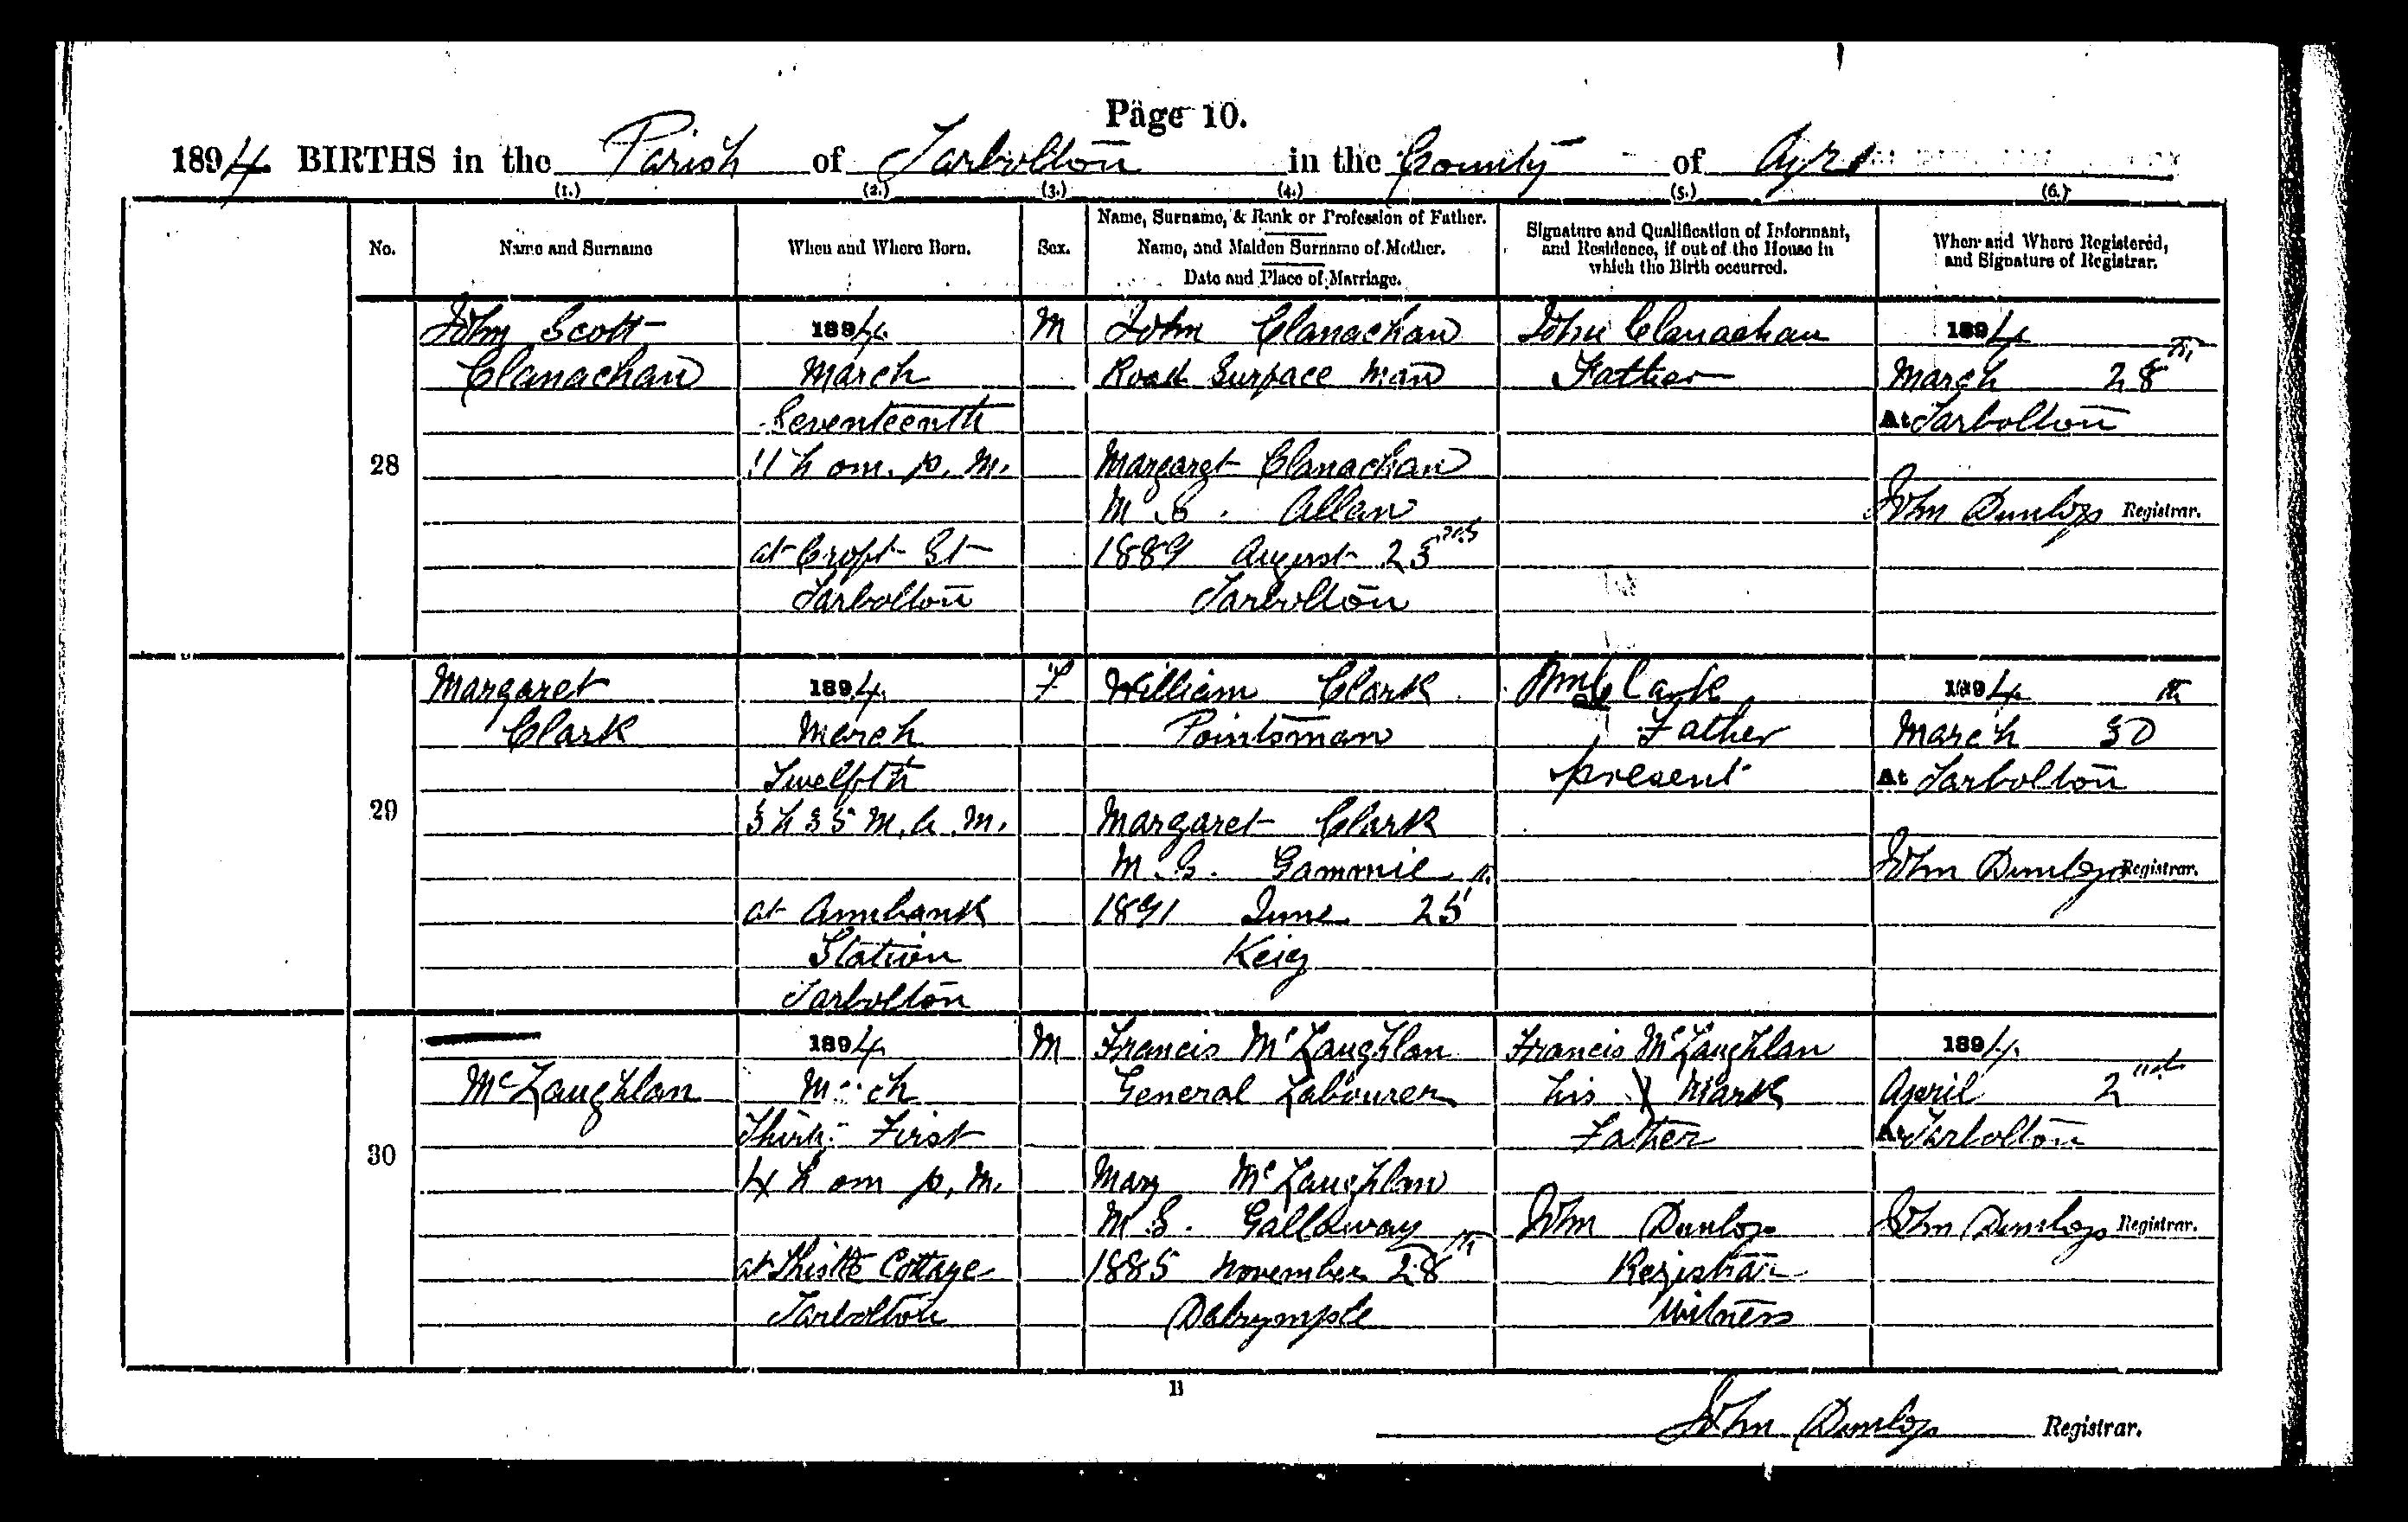 Page 10.
1894. BIRTHS in the Parish of Tarbolton in the County of Ayr
(1.) (2.) (3.) (4.) (5.) (6.)
No.
Name and Surname
When and Where Born.
Sex.
Name, Surname, & Rank or Profession of Father.
Name, and Maiden Surname of Mother.
Date and Place of Marriage.
Signature and Qualification of Informant,
and Residence, if out of the House in
which the Birth occurred.
When and Where Registered,
and Signature of Registrar.
28
John Scott
Clanachan
1894.
March
Seventeenth
11 h om. p. M.
at Croft St
Tarbolton
M
John Clanachan
Road Surface Man
Margaret Clanachan
M. S. Allan
1889 August 23rd
Tarbolton
John Clanachan
Father
1894
March 28th
At Tarbolton
John Dunlop Registrar.
29
Margaret
Clark
1894.
March
Twelfth
3 h 35 M. A. M.
at Annbank
Station
Tarbolton
F
William Clark
Pointsman
Margaret Clark
M. S. Gammie
1891 June 25th
Keig
Wm Clark
Father
present
1894
March 30th
At Tarbolton
John Dunlop Registrar.
30
McLaughlan
1894.
March
Thirty First
4 h om p. M.
at Thistle Cottage
Tarbolton
M
Francis McLaughlan
General Labourer
Mary McLaughlan
M. S. Galloway
1885 November 28th
Dalrymple
Francis McLaughlan
his X Mark
Father
John Dunlop
Registrar
Witness
1894.
April 2nd
At Tarbolton
John Dunlop Registrar.
B
John Dunlop Registrar.